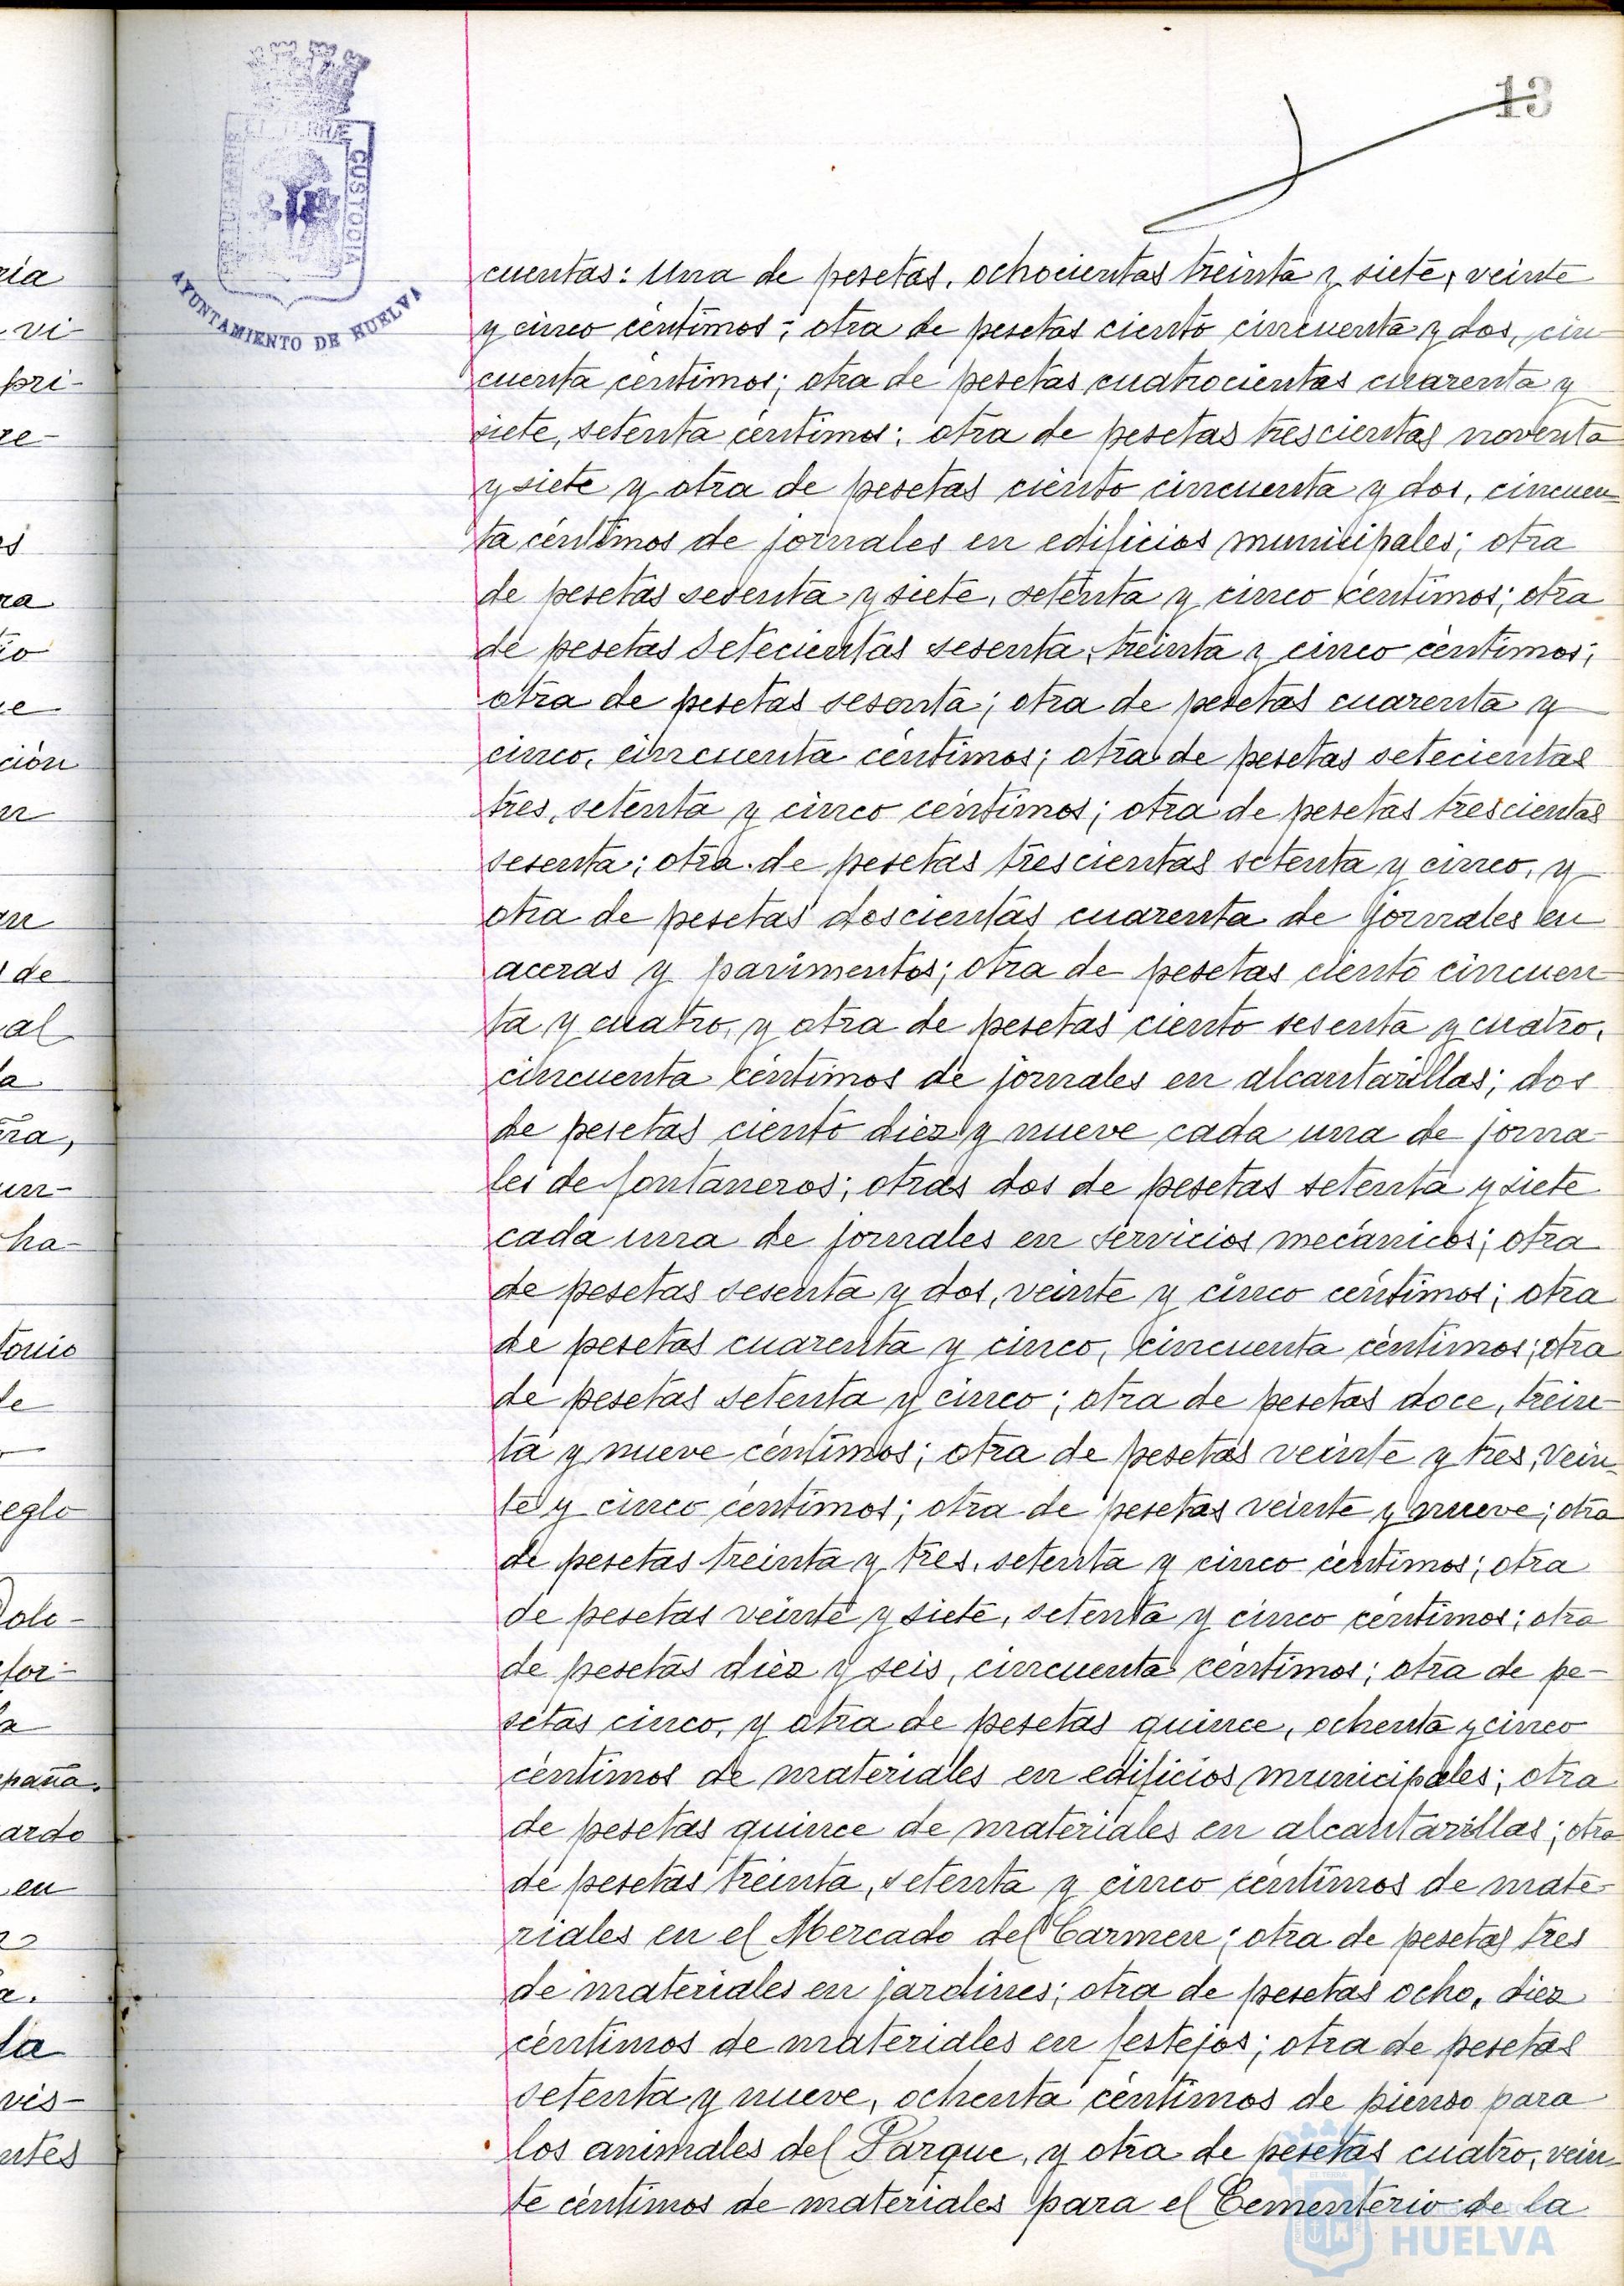 13
CUSTODIA
AYUNTAMIENTO DE HUELVA
cuentas: Una de pesetas, ochocientas treinta y siete, veinte
y cinco céntimos; otra de pesetas ciento cincuenta y dos, cin
cuenta céntimos; otra de pesetas cuatrocientas cuarenta y
siete, setenta céntimos; otra de pesetas trescientas noventa
y siete y otra de pesetas ciento cincuenta y dos, cincuen
ta céntimos de jornales en edificios municipales; otra
de pesetas sesenta y siete, setenta y cinco céntimos; otra
de pesetas setecientas sesenta, treinta y cinco céntimos;
otra de pesetas sesenta; otra de pesetas cuarenta y
cinco, cincuenta céntimos; otra de pesetas setecientas
tres, setenta y cinco céntimos; otra de pesetas trescientas
sesenta; otra de pesetas trescientas setenta y cinco, y
otra de pesetas doscientas cuarenta de jornales en
aceras y pavimentos; otra de pesetas ciento cincuen
ta y cuatro, y otra de pesetas ciento sesenta y cuatro,
cincuenta céntimos de jornales en alcantarillas; dos
de pesetas ciento diez y nueve cada una de jorna
les de fontaneros; otras dos de pesetas setenta y siete
cada una de jornales en servicios mecánicos; otra
de pesetas sesenta y dos, veinte y cinco céntimos; otra
de pesetas cuarenta y cinco, cincuenta céntimos; otra
de pesetas setenta y cinco; otra de pesetas doce, trein-
ta y nueve céntimos; otra de pesetas veinte y tres, vein
te y cinco céntimos; otra de pesetas veinte y nueve; otra
de pesetas treinta y tres, setenta y cinco céntimos; otra
de pesetas veinte y siete, setenta y cinco céntimos; otra
de pesetas diez y seis, cincuenta céntimos; otra de pe-
setas cinco, y otra de pesetas quince, ochenta y cinco
céntimos de materiales en edificios municipales; otra
de pesetas quince de materiales en alcantarillas; otra
de pesetas treinta, setenta y cinco céntimos de mate
riales en el Mercado del Carmen; otra de pesetas tres
de materiales en jardines; otra de pesetas ocho, diez
céntimos de materiales en festejos; otra de pesetas
setenta y nueve, ochenta céntimos de pienso para
los animales del Parque, y otra de pesetas cuatro, vein
te céntimos de materiales para el Cementerio de la
HUELVA